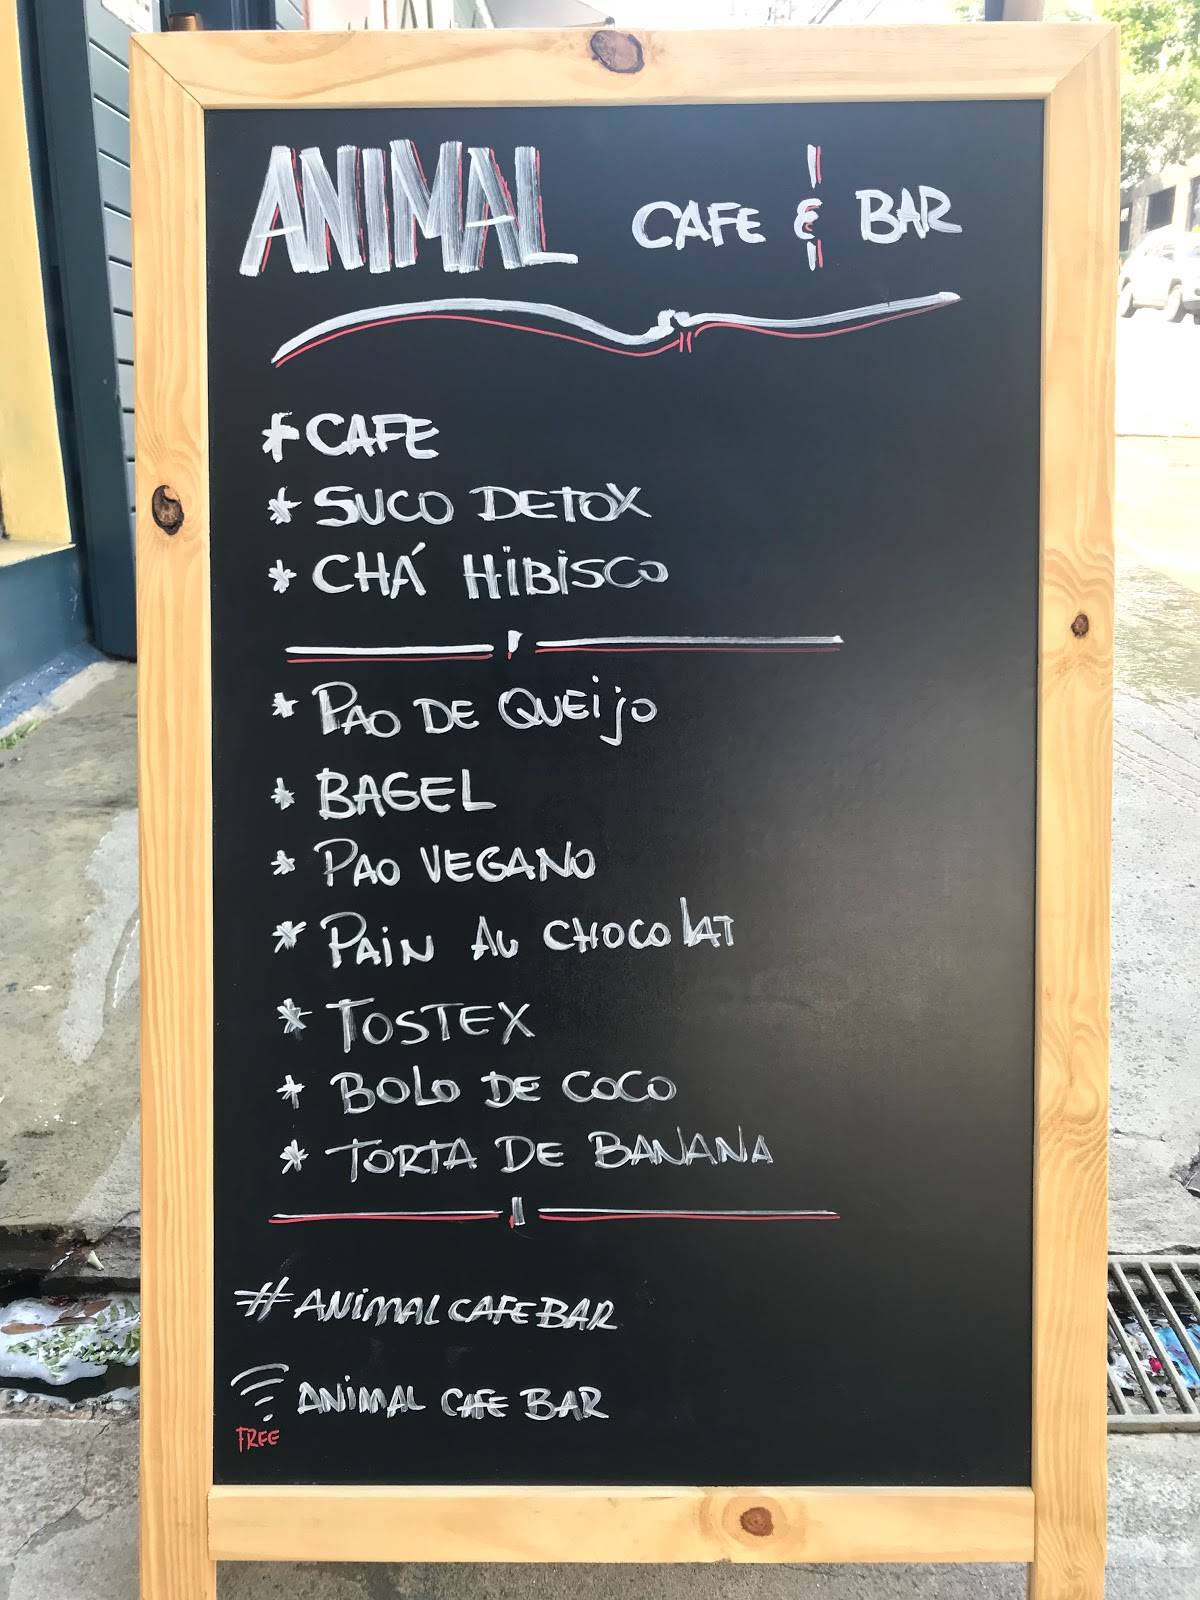 ANIMAL CAFE & BAR
* CAFE
* SUCO DETOX
* CHÁ HIBISCO
* PAO DE QUEIJO
* BAGEL
* PAO VEGANO
* PAIN AU CHOCOLAT
* TOSTEX
* BOLO DE COCO
* TORTA DE BANANA
#ANIMALCAFEBAR
ANIMAL CAFE BAR
FREE